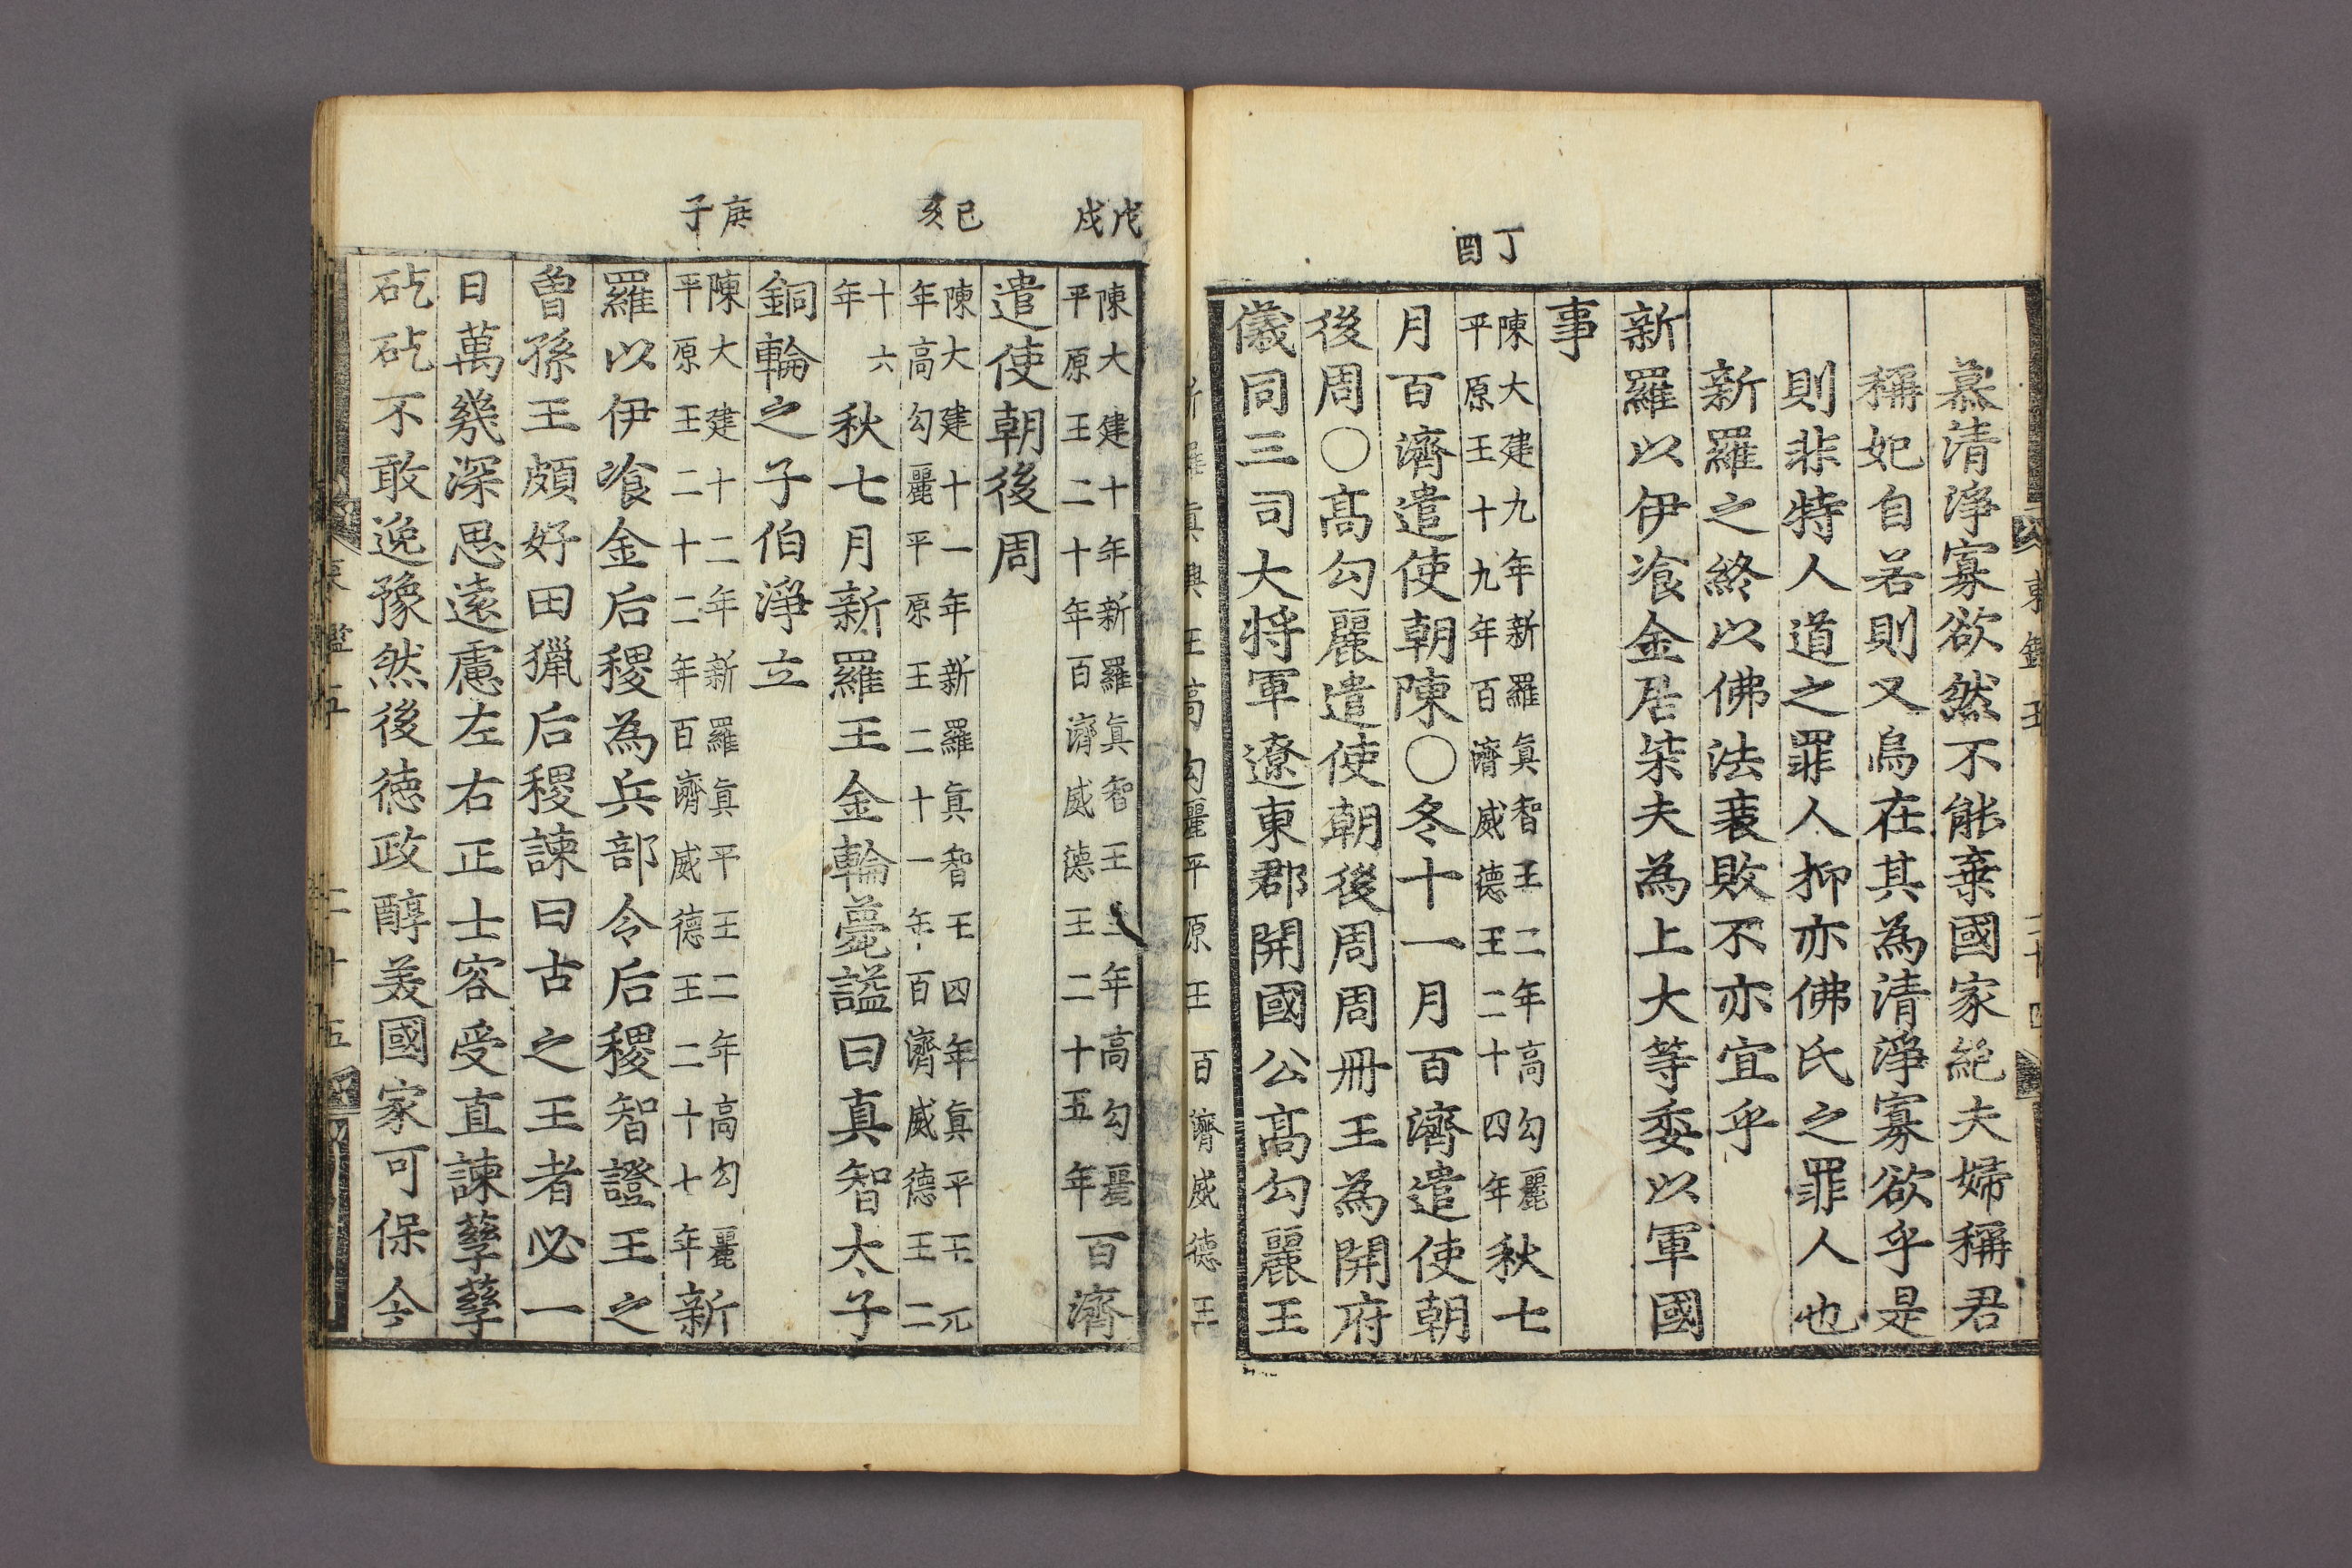 慕清淨寡欲然不能棄國家絶夫婦稱君
稱妃自若則又烏在其為清淨寡欲乎是
則非特人道之罪人抑亦佛氏之罪人也
新羅之終以佛法衰敗不亦宜乎
新羅以伊飡金居柒夫為上大等委以軍國
事
丁酉
陳大建九年新羅眞智王二年高勾麗
平原王十九年百濟威德王二十四年
秋七
月百濟遣使朝陳〇冬十一月百濟遣使朝
後周〇髙勾麗遣使朝後周周冊王為開府
儀同三司大將軍遼東郡開國公髙勾麗王
戊戌
陳大建十年新羅眞智王三年高勾麗
平原王二十年百濟威德王二十五年
百濟
遣使朝後周
己亥
陳大建十一年新羅眞智王四年眞平王元
年高勾麗平原王二十一年百濟威德王二
十六
年
秋七月新羅王金輪薨諡曰真智太子
銅輪之子伯淨立
庚子
陳大建十二年新羅眞平王二年高勾麗
平原王二十二年百濟威德王二十七年
新
羅以伊飡金后稷為兵部令后稷智證王之
曾孫王頗好田獵后稷諫曰古之王者必一
日萬幾深思遠慮左右正士容受直諫孶孶
矻矻不敢逸豫然後德政醇美國家可保今